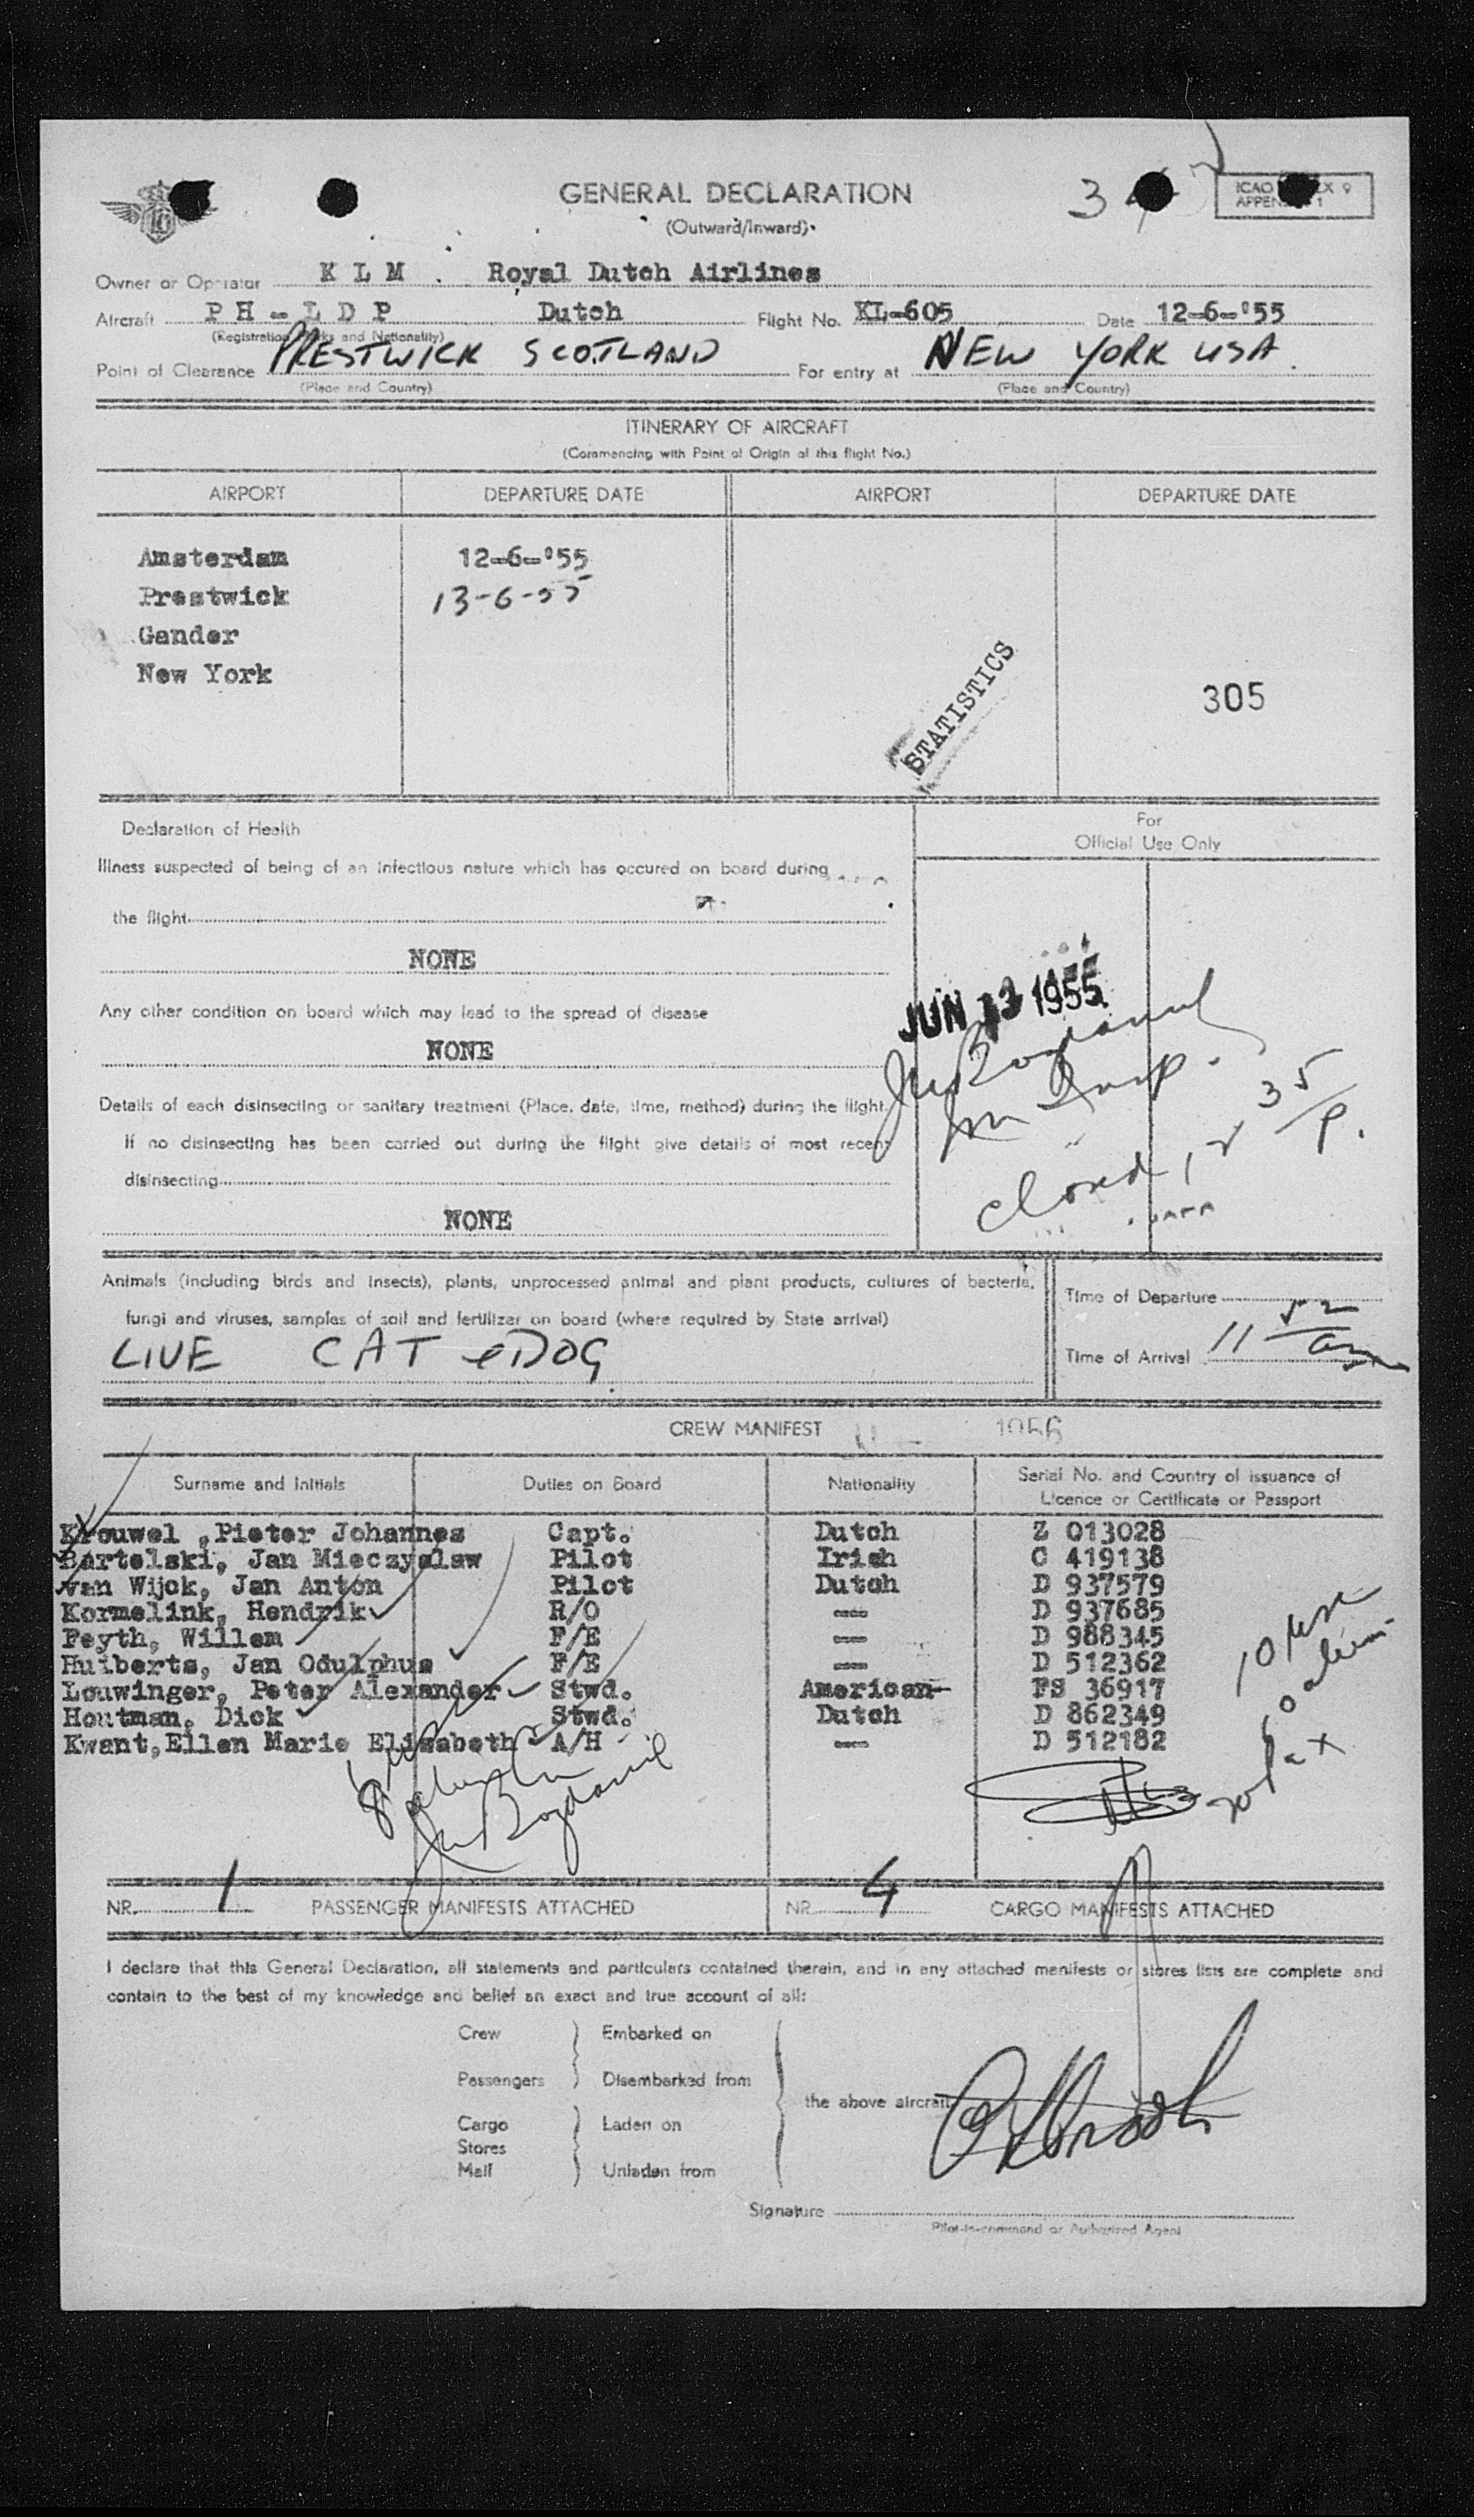 GENERAL DECLARATION
(Outward/Inward)
ICAO
APPEN 1
Owner or Operator K L M . Royal Dutch Airlines
Aircraft P H - L D P Dutch Flight No. KL-605 Date 12-6-'55
(Registration Marks and Nationality)
Point of Clearance PRESTWICK SCOTLAND For entry at NEW YORK USA.
(Place and Country) (Place and Country)
ITINERARY OF AIRCRAFT
(Commencing with Point of Origin of this flight No.)
AIRPORT DEPARTURE DATE AIRPORT DEPARTURE DATE
Amsterdam 12-6-'55
Prestwick 13-6-55
Gander
New York
STATISTICS
305
Declaration of Health
For
Official Use Only
Illness suspected of being of an infectious nature which has occured on board during
the flight
NONE
Any other condition on board which may lead to the spread of disease
NONE
JUN 13 1955
Details of each disinsecting or sanitary treatment (Place, date, time, method) during the flight.
If no disinsecting has been carried out during the flight give details of most recent
disinsecting
NONE
closed, 12 35/P.
Animals (including birds and insects), plants, unprocessed animal and plant products, cultures of bacteria,
fungi and viruses, samples of soil and fertilizer on board (where required by State arrival)
LIVE CAT & DOG
Time of Departure
Time of Arrival 11 52/am
CREW MANIFEST
Surname and Initials Duties on Board Nationality Serial No. and Country of issuance of
Licence or Certificate or Passport
Krouwel ,Pieter Johannes Capt. Dutch Z 013028
Bartelski, Jan Mieczyslaw Pilot Irish C 419138
van Wijck, Jan Anton Pilot Dutch D 937579
Kormelink, Hendrik R/O --- D 937685
Feyth, Willem F/E --- D 988345
Huiberts, Jan Odulphus F/E --- D 512362
Louwinger, Peter Alexander Stwd. American FS 36917
Houtman, Dick Stwd. Dutch D 862349
Kwant,Ellen Marie Elisabeth A/H --- D 512182
NR. 1 PASSENGER MANIFESTS ATTACHED NR. 4 CARGO MANIFESTS ATTACHED
I declare that this General Declaration, all statements and particulars contained therein, and in any attached manifests or stores lists are complete and
contain to the best of my knowledge and belief an exact and true account of all:
Crew Embarked on
Passengers Disembarked from
the above aircraft
Cargo Laden on
Stores
Mail Unladen from
Signature
Pilot-in-command or Authorized Agent